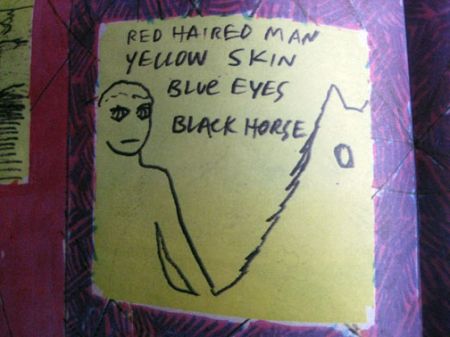 RED HAIRED MAN
YELLOW SKIN
BLUE EYES
BLACK HORSE